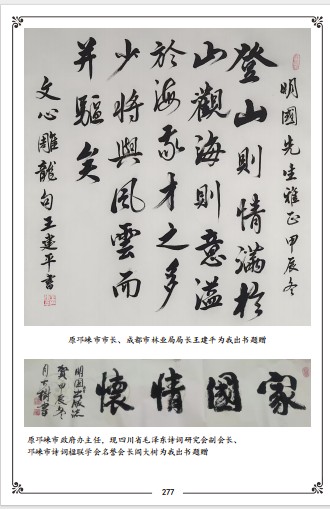 明國先生雅正甲辰冬
登山則情滿於
山觀海則意溢
於海我才之多
少將與風雲而
并驅矣
文心雕龍句王建平書
原邛崃市市长、成都市林业局局长王建平为我出书题赠
家國情懷
明国出版志
贺甲辰冬
月大樹書
原邛崃市政府办主任，现四川省毛泽东诗词研究会副会长、
邛崃市诗词楹联学会名誉会长闵大树为我出书题赠
277